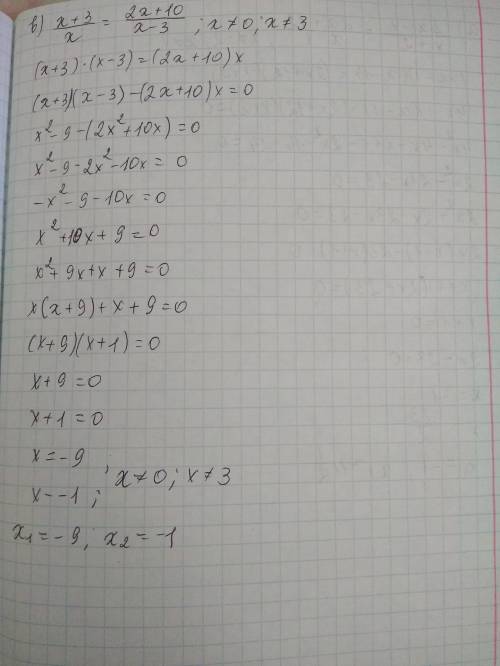 в) x+3/x = 2x+10/x-3 ; x≠0; x≠3
(x+3)·(x-3)=(2x+10)x
(x+3)(x-3)-(2x+10)x=0
x²-9-(2x²+10x)=0
x²-9-2x²-10x=0
-x²-9-10x=0
x²+10x+9=0
x²+9x+x+9=0
x(x+9)+x+9=0
(x+9)(x+1)=0
x+9=0
x+1=0
x=-9
x=-1; ; x≠0; x≠3
x₁=-9; x₂=-1